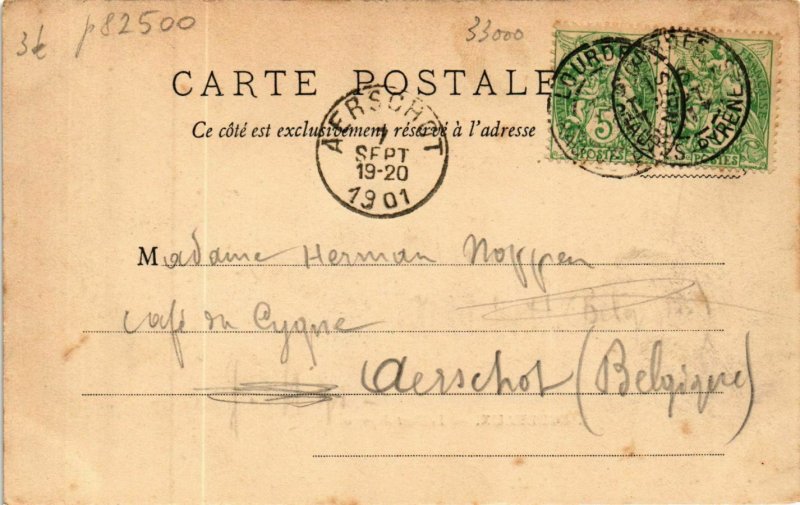 3€ p82500 33000
CARTE POSTALE
Ce côté est exclusivement réservé à l'adresse
AERSCHOT
7
SEPT
19-20
1901
LOURDES
5
POSTES
Madame Herman Noppen
Café du Cygne
Aerschot (Belgique)